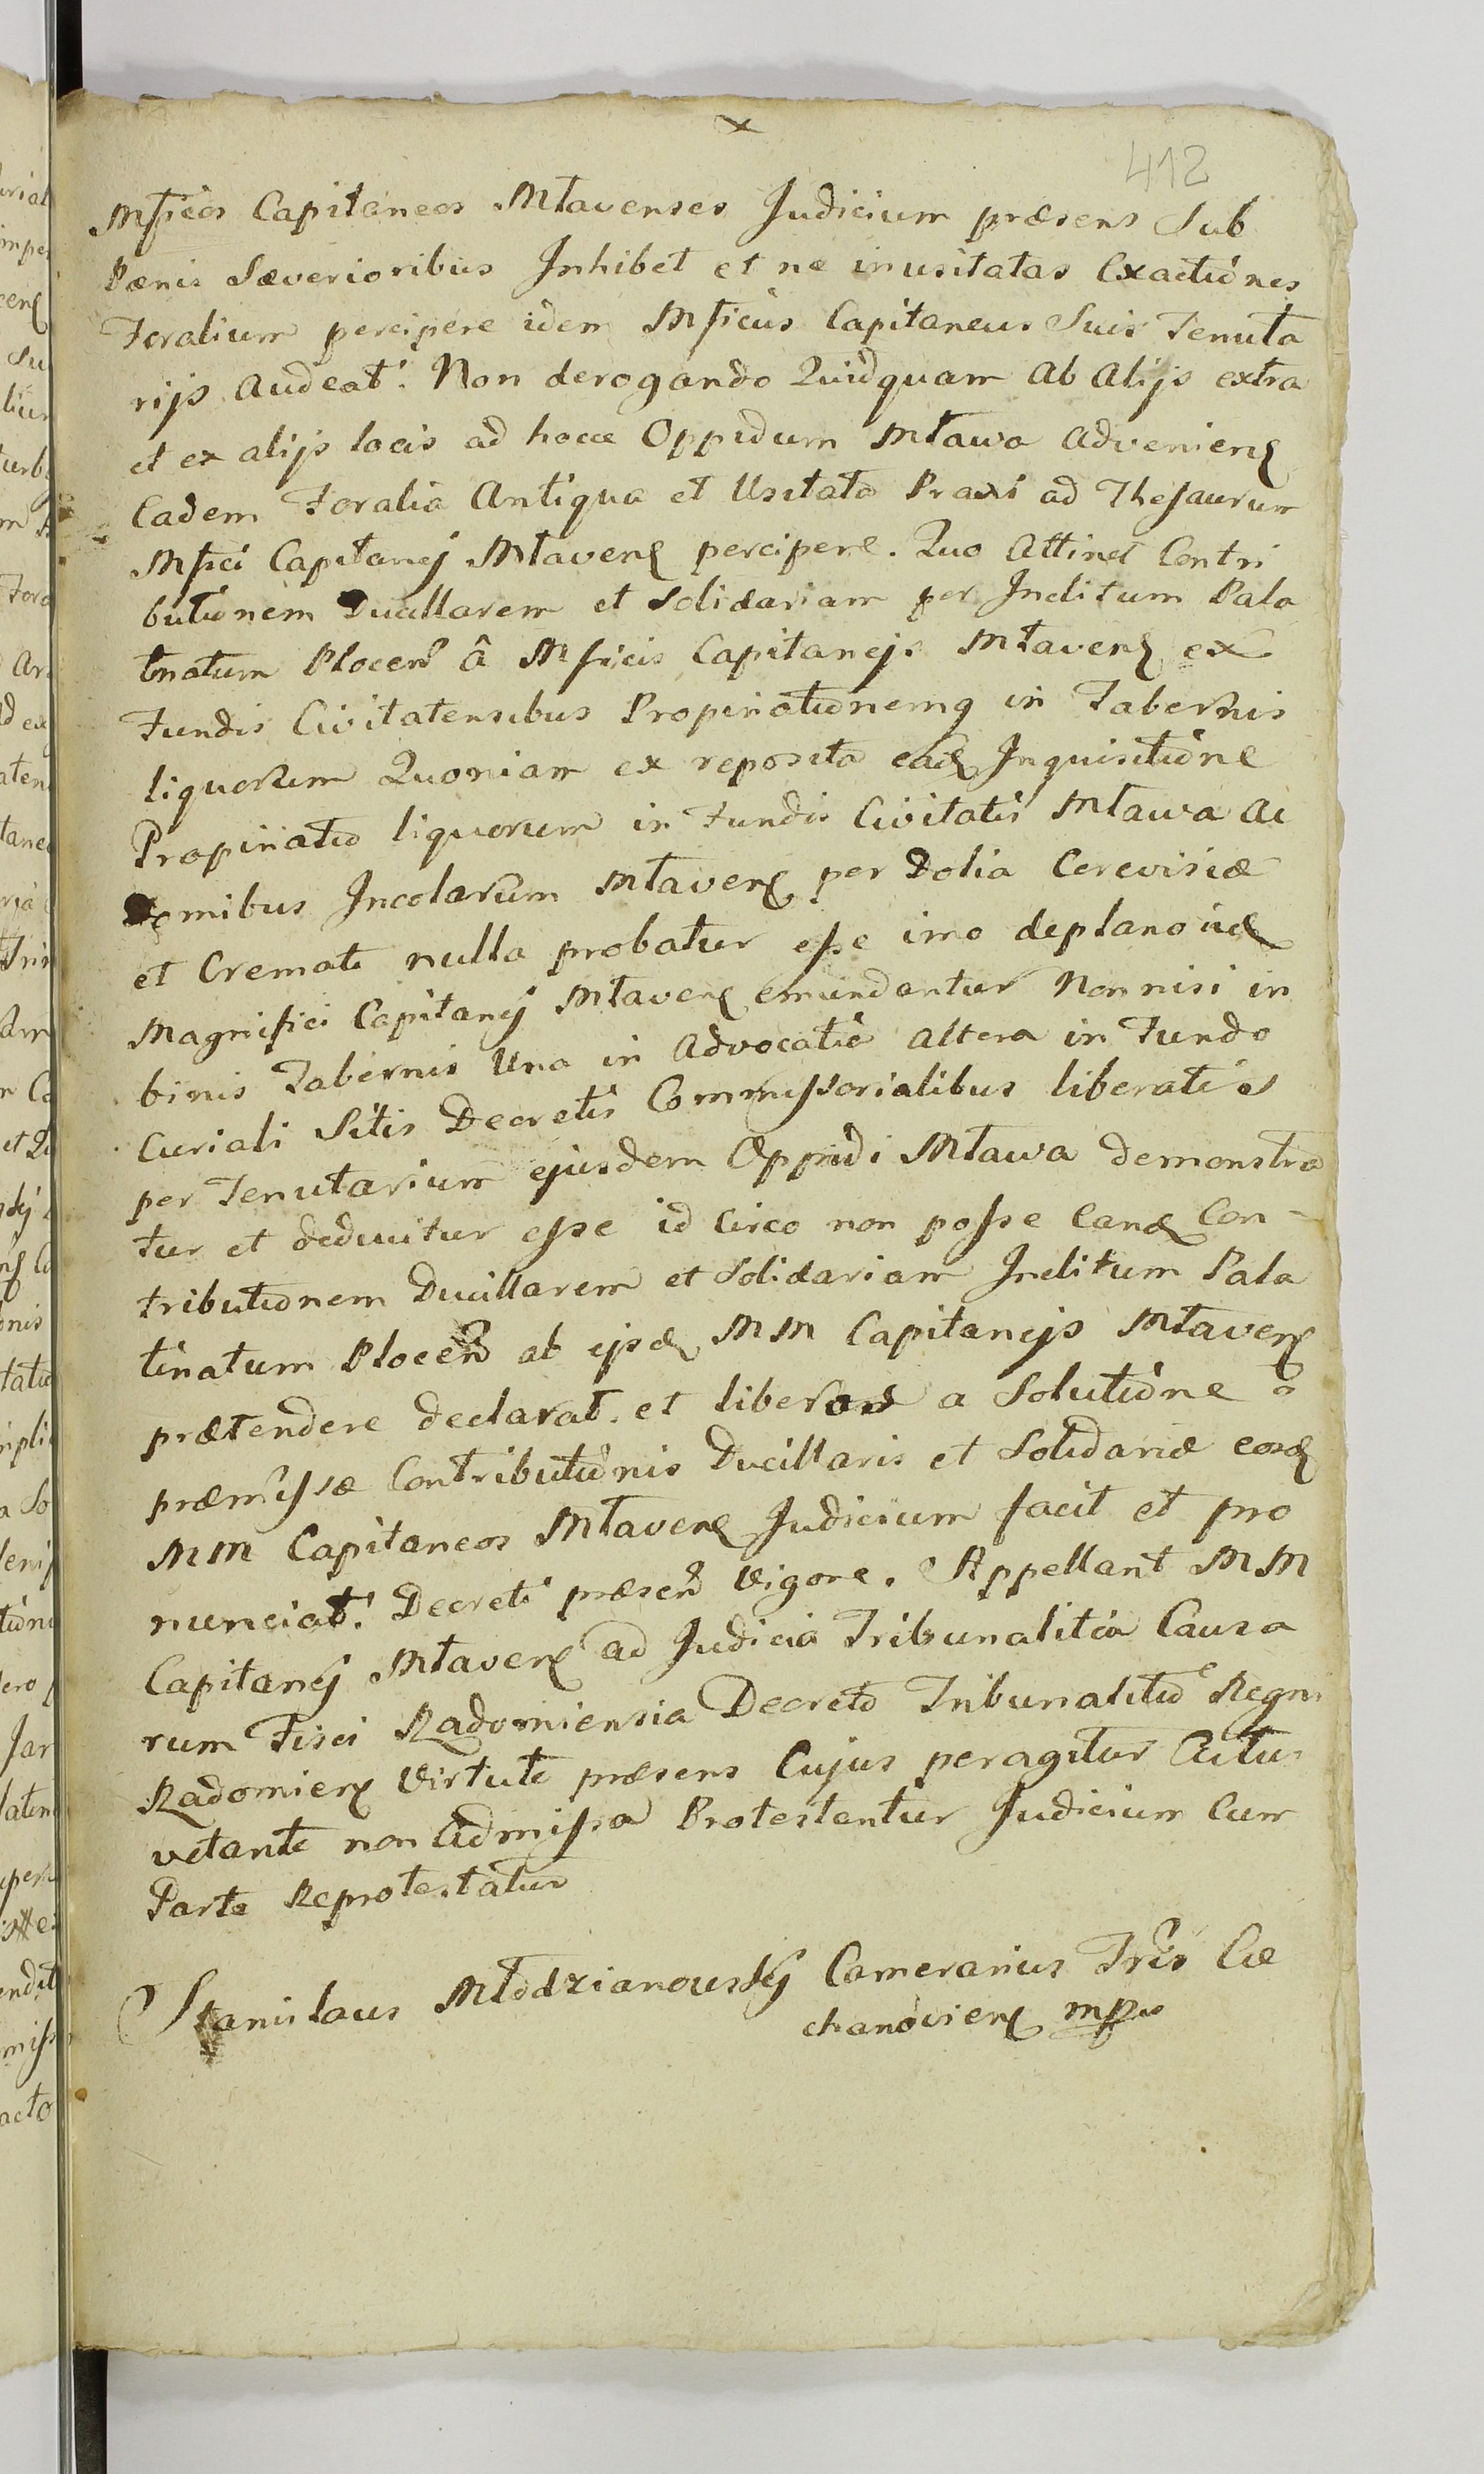 412
Mficos Capitaneos Mławenses Judicium præsens Sub
Pænis Sæverioribus Inhibet et ne inusitatas Exactiones
Foralium percipere idem Mficus Capitaneus Suis Tenuta
rijs audeat. Non derogando Quidquam ab alijs extra
et ex alijs locis ad hocce Oppidum Mława advenien
Eadem Foralia Antiqua et Usitata Praxi ad Thesaurum
Mfici Capitanej Mławen percipere. Quo attinet Contri
butionem Ducillarem et Solidariam per Inclitum Pala
tinatum Plocen â Mficis Capitanejs Mławen ex
Fundis Civitatensibus Propinationemq in Tabernis
liquorum Quoniam ex reposita ead Inquisitione
Propinatio liquorum in Fundis Civitatis Mława ac
Domibus Incolarum Mławen per Dolia Cerevisiæ
et Cremati nulla probatur esse imo deplano iid
Magnifici Capitanej Mławen emundantur Non nisi in
binis Tabernis Una in Advocatia altera in Fundo
Curiali Sitis Decretis Commissorialibus liberatis
per Tenutarium ejusdem Oppidi Mława demonstra
tur et deducitur esse id circo non posse eand Con-
tributionem Ducillarem et Solidariam Inclitum Pala
tinatum Plocen ab ijsd MM Capitanejs Mławen
prætendere declarat. et liberos a Solutione
præmissæ Contributionis Ducillaris et Solidariæ eosd
MM Capitaneos Mławen Judicium facit et pro
nunciat. Decreti præsen Vigore. Appellant MM
Capitanej Mławen ad Judicia Tribunalitia Causa
rum Fisci Radomiensia Decreto Tribunalitio Regni
Radomien Virtute præsens Cujus peragitur Actus
vetante non Admissa Protestantur Judicium Cum
Parte Reprotestatur
Stanislaus Młodzianowskÿ Camerarius Tris Cie
chanovien mpr